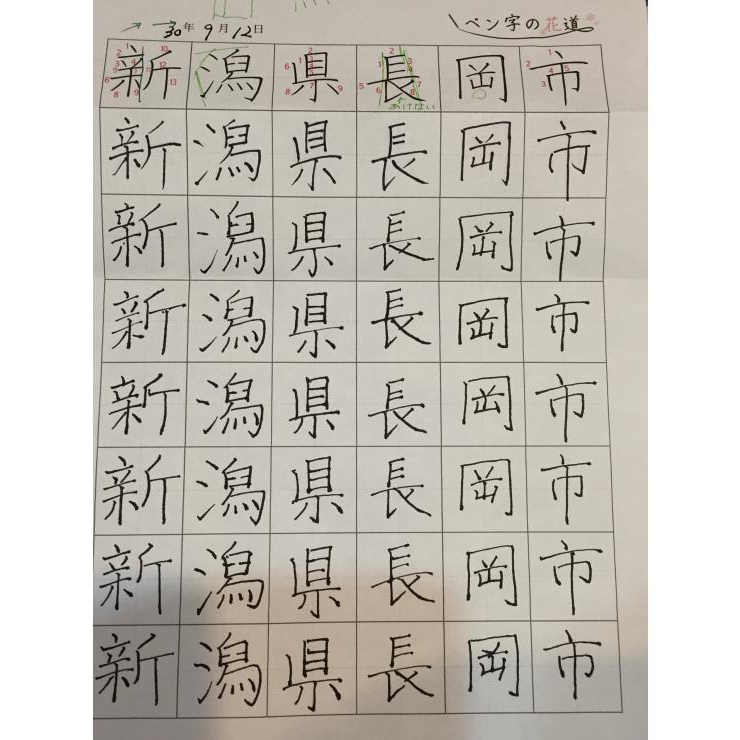 30年9月12日 ペン字の花道
新潟県長岡市
あけない
新潟県長岡市
新潟県長岡市
新潟県長岡市
新潟県長岡市
新潟県長岡市
新潟県長岡市
新潟県長岡市